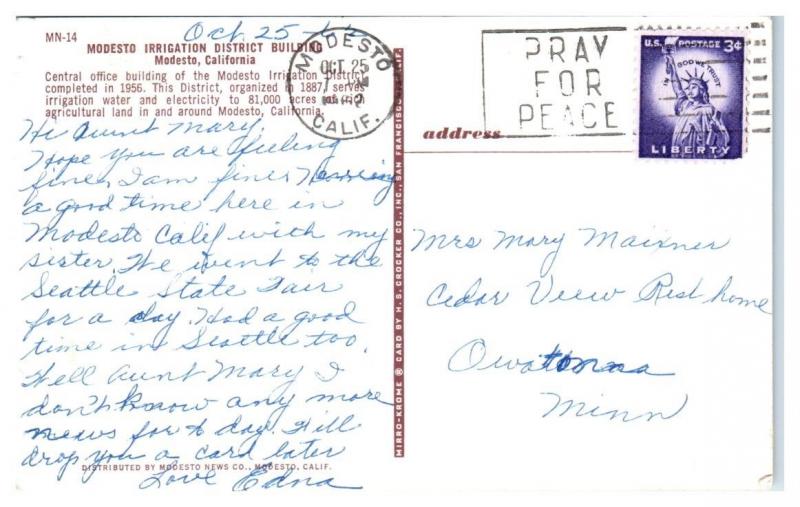 MN-14
Oct. 25
MODESTO IRRIGATION DISTRICT BUILDING
Modesto, California
Central office building of the Modesto Irrigation District
completed in 1956. This District, organized in 1887, serves
irrigation water and electricity to 81,000 acres of rich
agricultural land in and around Modesto, California.
Hi Aunt Mary,
Hope you are feeling
fine. I am fine. Having
a good time here in
Modesto Calif with my
sister. We went to the
Seattle State Fair
for a day. Had a good
time in Seattle too.
Well Aunt Mary I
don't know any more
news for to day. Will
drop you a card later
Love Edna
DISTRIBUTED BY MODESTO NEWS CO., MODESTO, CALIF.
MIRRO-KROME ® CARD BY H. S. CROCKER CO., INC., SAN FRANCISCO, CALIF.
MODESTO
OCT 25
PM
CALIF.
PRAY
FOR
PEACE
U.S. POSTAGE 3¢
IN GOD WE TRUST
LIBERTY
address
Mrs Mary Maixner
Cedar View Rest home
Owatonna
Minn